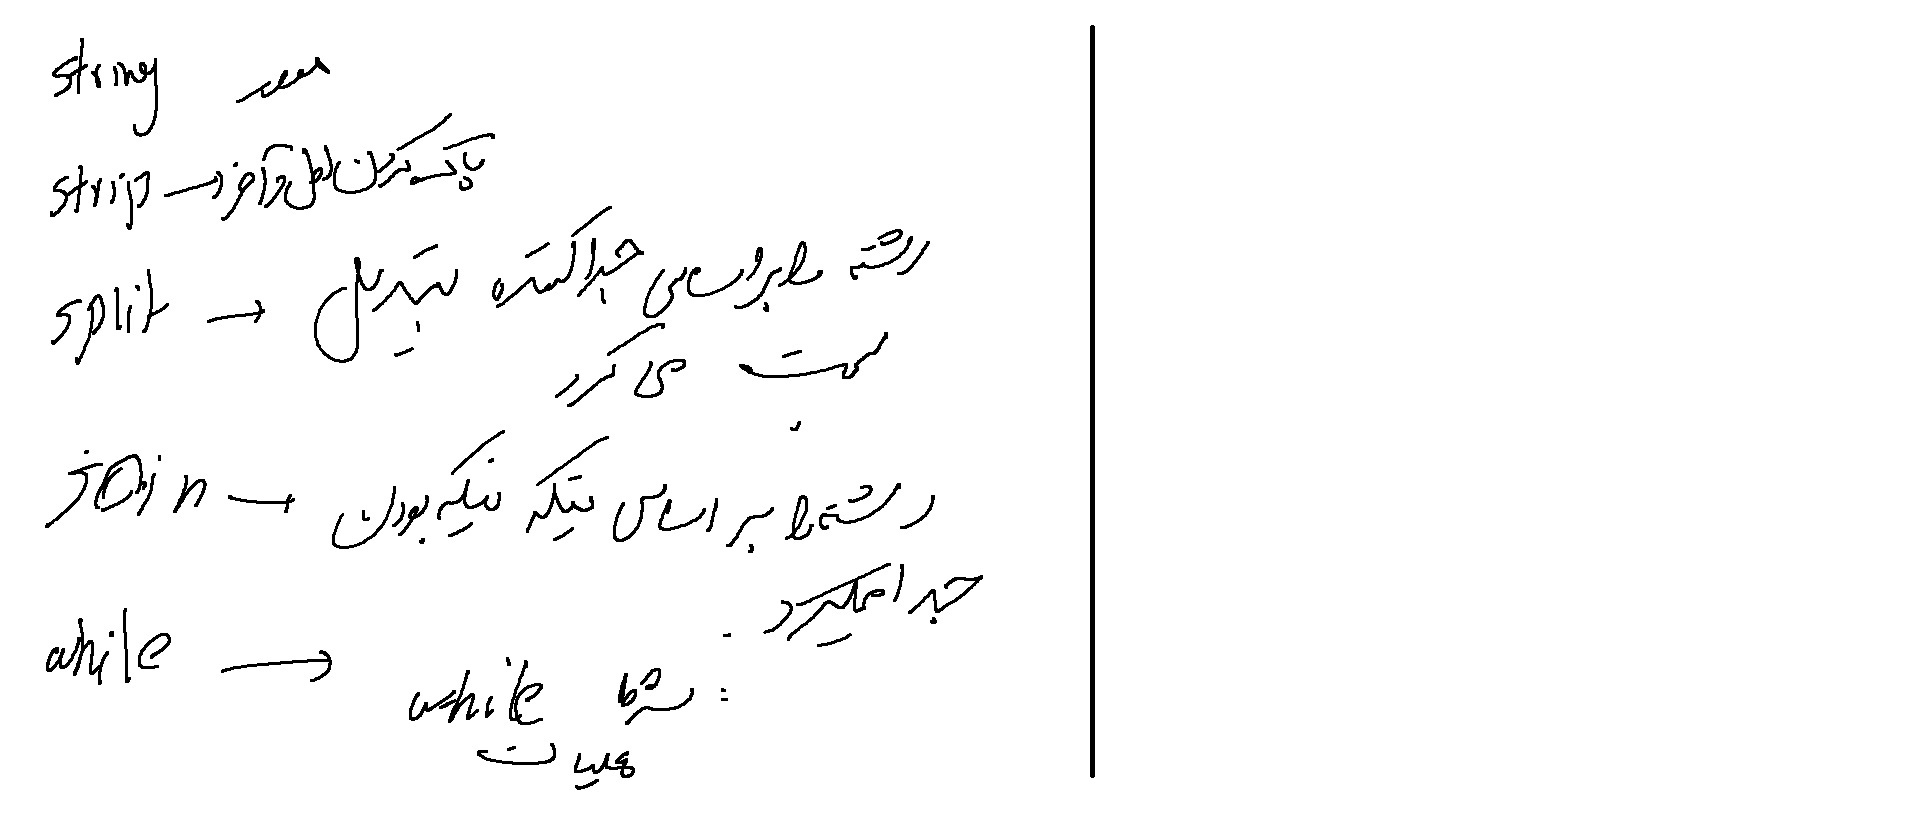 string
strip → پاک کردن اول و آخر
split → رشته ها بر اساس جدا کننده تبدیل
می کرد
join → رشته ها بر اساس تیکه تیکه بودن
جدا میگیرد
while →
while شرط :